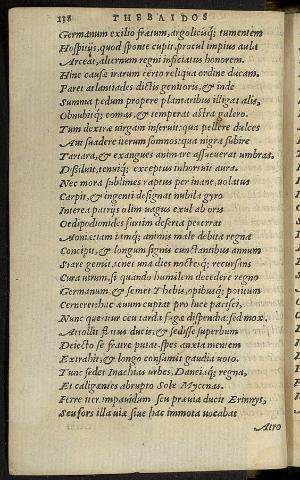 118 THEBAIDOS
Germanum exilio fretum, argolicisq; tumentem
Hospitijs, quod sponte cupit, procul impius aula
Arceat, alternum regni inficiatus honorem.
Hinc causæ irarum certo reliqua ordine ducam.
Paret atlantiades dictis genitoris, & inde
Summa pedum propere plantaribus illigat alis,
Obnubitq; comas, & temperat astra galero.
Tum dextræ uirgam inseruit: qua pellere dulces
Aut suadere iterum somnos: qua nigra subire
Tartara, & exangues animare assueuerat umbras.
Dissiluit, tenuiq; exceptus inhorruit aura.
Nec mora sublimes raptus per inane uolatus
Carpit, & ingenti designat nubila gyro
Interea patrijs olim uagus exul ab oris
Oedipodionides furtim deserta pererrat
Aoniæ: iam iamq; animis male debita regna
Concipit, & longum signis cunctantibus annum
Stare gemit. tenet una dies noctesq; recursans
Cura uirum, si quando humilem decedere regno
Germanum, & semet Thebis, opibusq; potitum
Cerneret: hac æuum cupiat pro luce pacisci,
Nunc queritur ceu tarda fugæ dispendia: sed mox
Attollit flatus ducis, & sedisse superbum
Deiecto se fratre putat. spes anxia mentem
Extrahit, & longo consumit gaudia uoto.
Tunc sedet Inachias urbes, Danaëiaq; regna,
Et caligantes abrupto Sole Mycenas.
Ferre iter impauidum seu præuia ducit Erinnys,
Seu fors illa uiæ siue hac immota uocabat
Atro